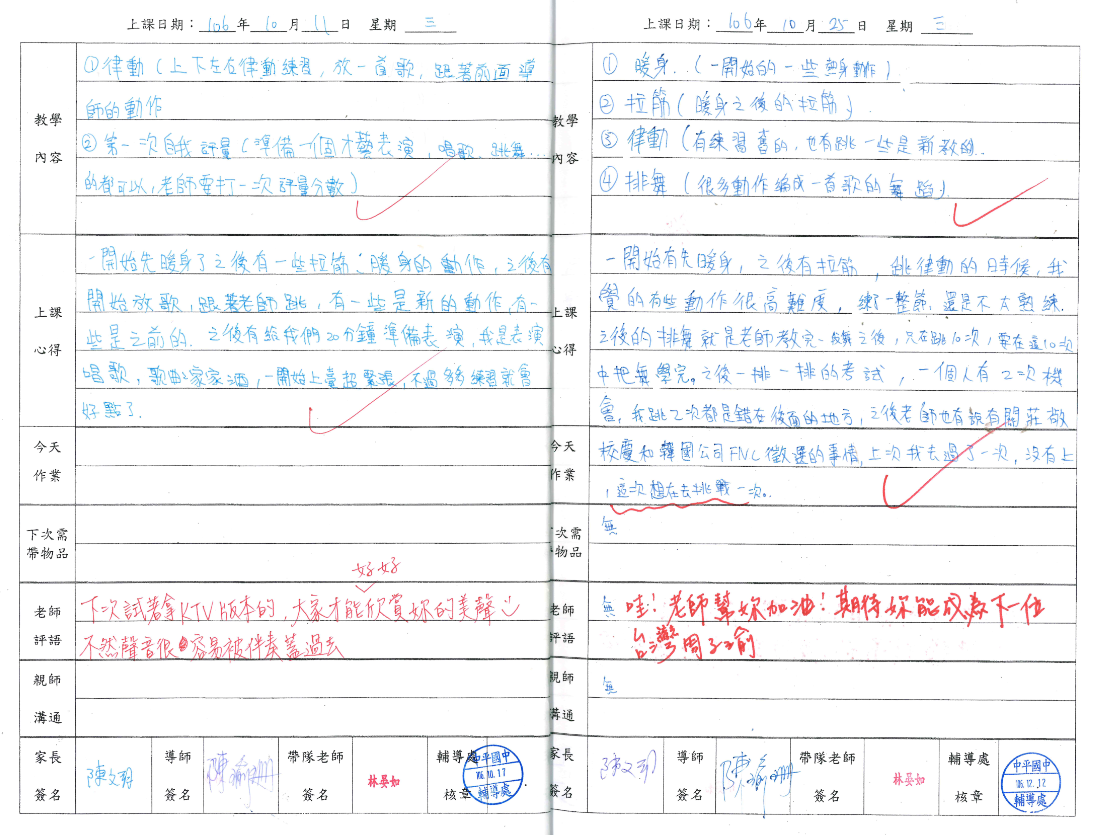 上課日期：106年10月11日 星期三
教學內容
①律動(上下左右律動練習,放一首歌,跟著前面導
師的動作
②第一次自我評量(準備一個才藝表演,唱歌.跳舞..
的都可以,老師要打一次評量分數)
上課心得
一開始先暖身了之後有一些拉筋、暖身的動作,之後有
開始放歌,跟著老師跳,有一些是新的動作,有一
些是之前的.之後有給我們20分鐘準備表演,我是表演
唱歌,歌曲家家酒,一開始上臺超緊張,不過多多練習就會
好點了.
今天作業
下次需帶物品
老師評語
好好
下次試著拿KTV版本的,大家才能欣賞妳的美聲
不然聲音很容易被伴奏蓋過去
親師溝通
家長簽名
陳文玥
導師簽名
帶隊老師簽名
林晏如
輔導處核章
中平國中
106.10.17
輔導處
上課日期：106年10月25日 星期三
教學內容
①暖身..(一開始的一些熱身動作)
②拉筋(暖身之後的拉筋).
③律動(有練習舊的,也有跳一些是新教的..
④排舞(很多動作編成一首歌的舞蹈)
上課心得
一開始有先暖身,之後有拉筋,跳律動的時候,我
覺的有些動作很高難度,練一整節,還是不太熟練.
之後的排舞就是老師教完一次之後,只在跳10次,要在這10次
中把舞學完。之後一排一排的考試,.一個人有2次機
會,我跳2次都是錯在後面的地方,之後老師也有說有關莊敬
今天作業
校慶和韓國公司FNC徵選的事情,上次我去過了一次,沒有上
,這次想在去挑戰一次。.
下次需帶物品
無
老師評語
無
哇!老師幫妳加油!期待妳能成為下一位
台灣周子瑜
親師溝通
無
家長簽名
陳文玥
導師簽名
帶隊老師簽名
林晏如
輔導處核章
中平國中
輔導處